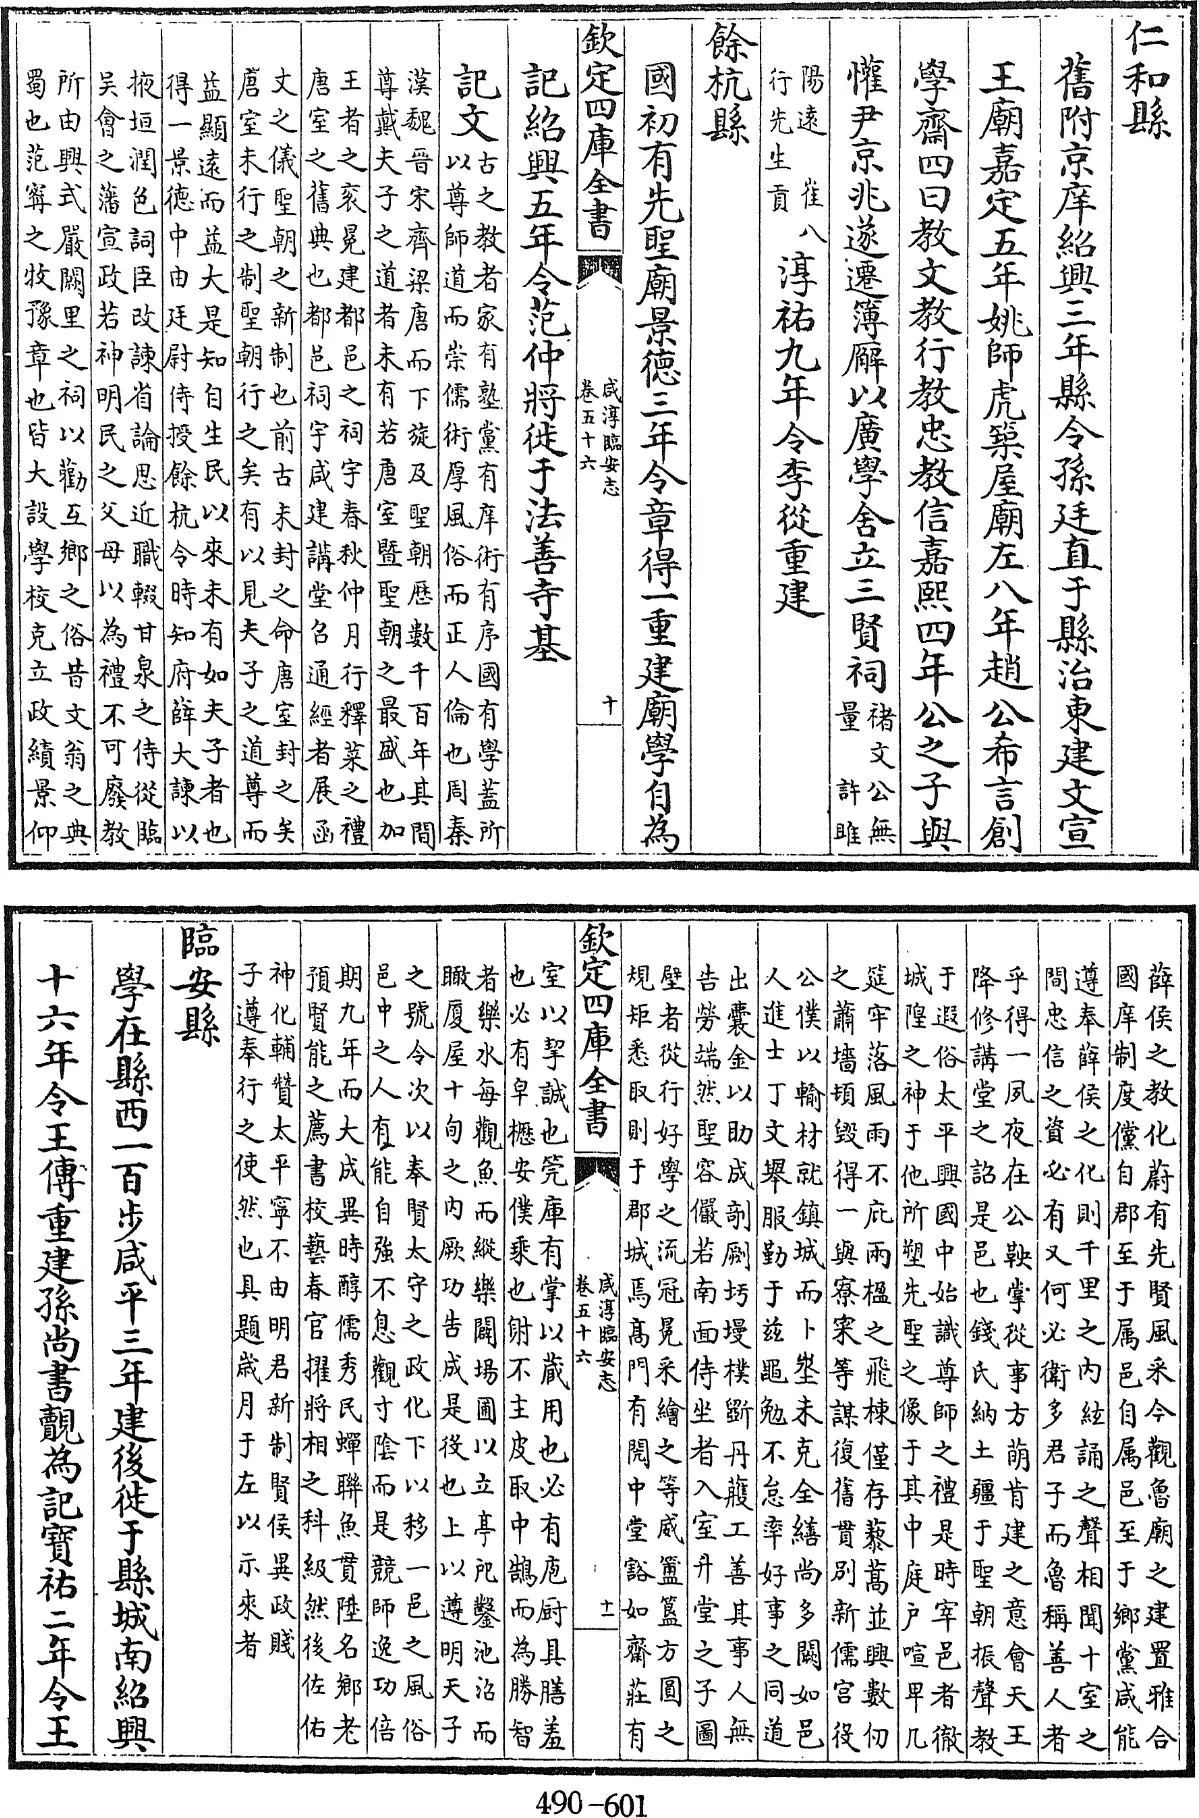 仁和縣
舊附京庠紹興三年縣令孫廷直于縣治東建文宣
王廟嘉定五年姚師虎築屋廟左八年趙公希言創
學齋四曰教文教行教忠教信嘉熙四年公之子與
懽尹京兆遂遷簿廨以廣學舍立三賢祠褚文公無
量許睢
陽遠崔八
行先生貢淳祐九年令李從重建
餘杭縣
國初有先聖廟景德三年令章得一重建廟學自為
欽定四庫全書
咸淳臨安志
卷五十六
十
記紹興五年令范仲將徙于法善寺基
記文古之教者家有塾黨有庠術有序國有學蓋所
以尊師道而崇儒術厚風俗而正人倫也周秦
漢魏晉宋齊梁唐而下旋及聖朝歷數千百年其間
尊戴夫子之道者未有若唐室暨聖朝之最盛也加
王者之衮冕建都邑之祠宇春秋仲月行釋菜之禮
唐室之舊典也都邑祠宇咸建講堂召通經者展函
丈之儀聖朝之新制也前古未封之命唐室封之矣
唐室未行之制聖朝行之矣有以見夫子之道尊而
益顯遠而益大是知自生民以來未有如夫子者也
得一景德中由廷尉侍授餘杭令時知府薛大諫以
掖垣潤色詞臣改諫省論思近職輟甘泉之侍從臨
吳會之藩宣政若神明民之父母以為禮不可廢教
所由興式嚴闕里之祠以勸互鄉之俗昔文翁之典
蜀也范甯之牧豫章也皆大設學校克立政績景仰
薛侯之教化蔚有先賢風采今觀魯廟之建置雅合
國庠制度儻自郡至于属邑自属邑至于鄉黨咸能
遵奉薛侯之化則千里之內絃誦之聲相聞十室之
間忠信之資必有又何必衛多君子而魯稱善人者
乎得一夙夜在公鞅掌從事方萌肯建之意會天王
降修講堂之詔是邑也錢氏納土疆于聖朝振聲教
于遐俗太平興國中始識尊師之禮是時宰邑者徹
城隍之神于他所塑先聖之像于其中庭户喧卑几
筵牢落風雨不庇兩楹之飛棟僅存藜蒿並興數仞
之蕭墻頃毀得一與寮寀等謀復舊貫別新儒宮役
公僕以輸材就鎮城而卜塋未克全繕尚多闕如邑
人進士丁文舉服勤于兹黽勉不怠率好事之同道
出囊金以助成剞劂圬墁樸斲丹雘工善其事人無
告勞端然聖容儼若南面侍坐者入室升堂之子圖
壁者從行好學之流冠冕采繪之等威簠簋方圓之
規矩悉取則于郡城焉高門有閌中堂豁如齋莊有
欽定四庫全書
咸淳臨安志
卷五十六
十一
室以挈誠也筦庫有掌以蕆用也必有庖厨具膳羞
也必有皁櫪安僕乘也射不主皮取中鵠而為勝智
者樂水每觀魚而縱樂闢場圃以立亭㡿鑿池沼而
瞰厦屋十旬之內厥功告成是役也上以遵明天子
之號令次以奉賢太守之政化下以移一邑之風俗
邑中之人有能自強不息觀寸陰而是競師逸功倍
期九年而大成異時醇儒秀民蟬聯魚貫陞名鄉老
預賢能之薦書校藝春官擢將相之科級然後佐佑
神化輔贊太平寧不由明君新制賢侯異政賤
子遵奉行之使然也具題歲月于左以示來者
臨安縣
學在縣西一百步咸平三年建後徙于縣城南紹興
十六年令王傳重建孫尚書覿為記寶祐二年令王
490-601